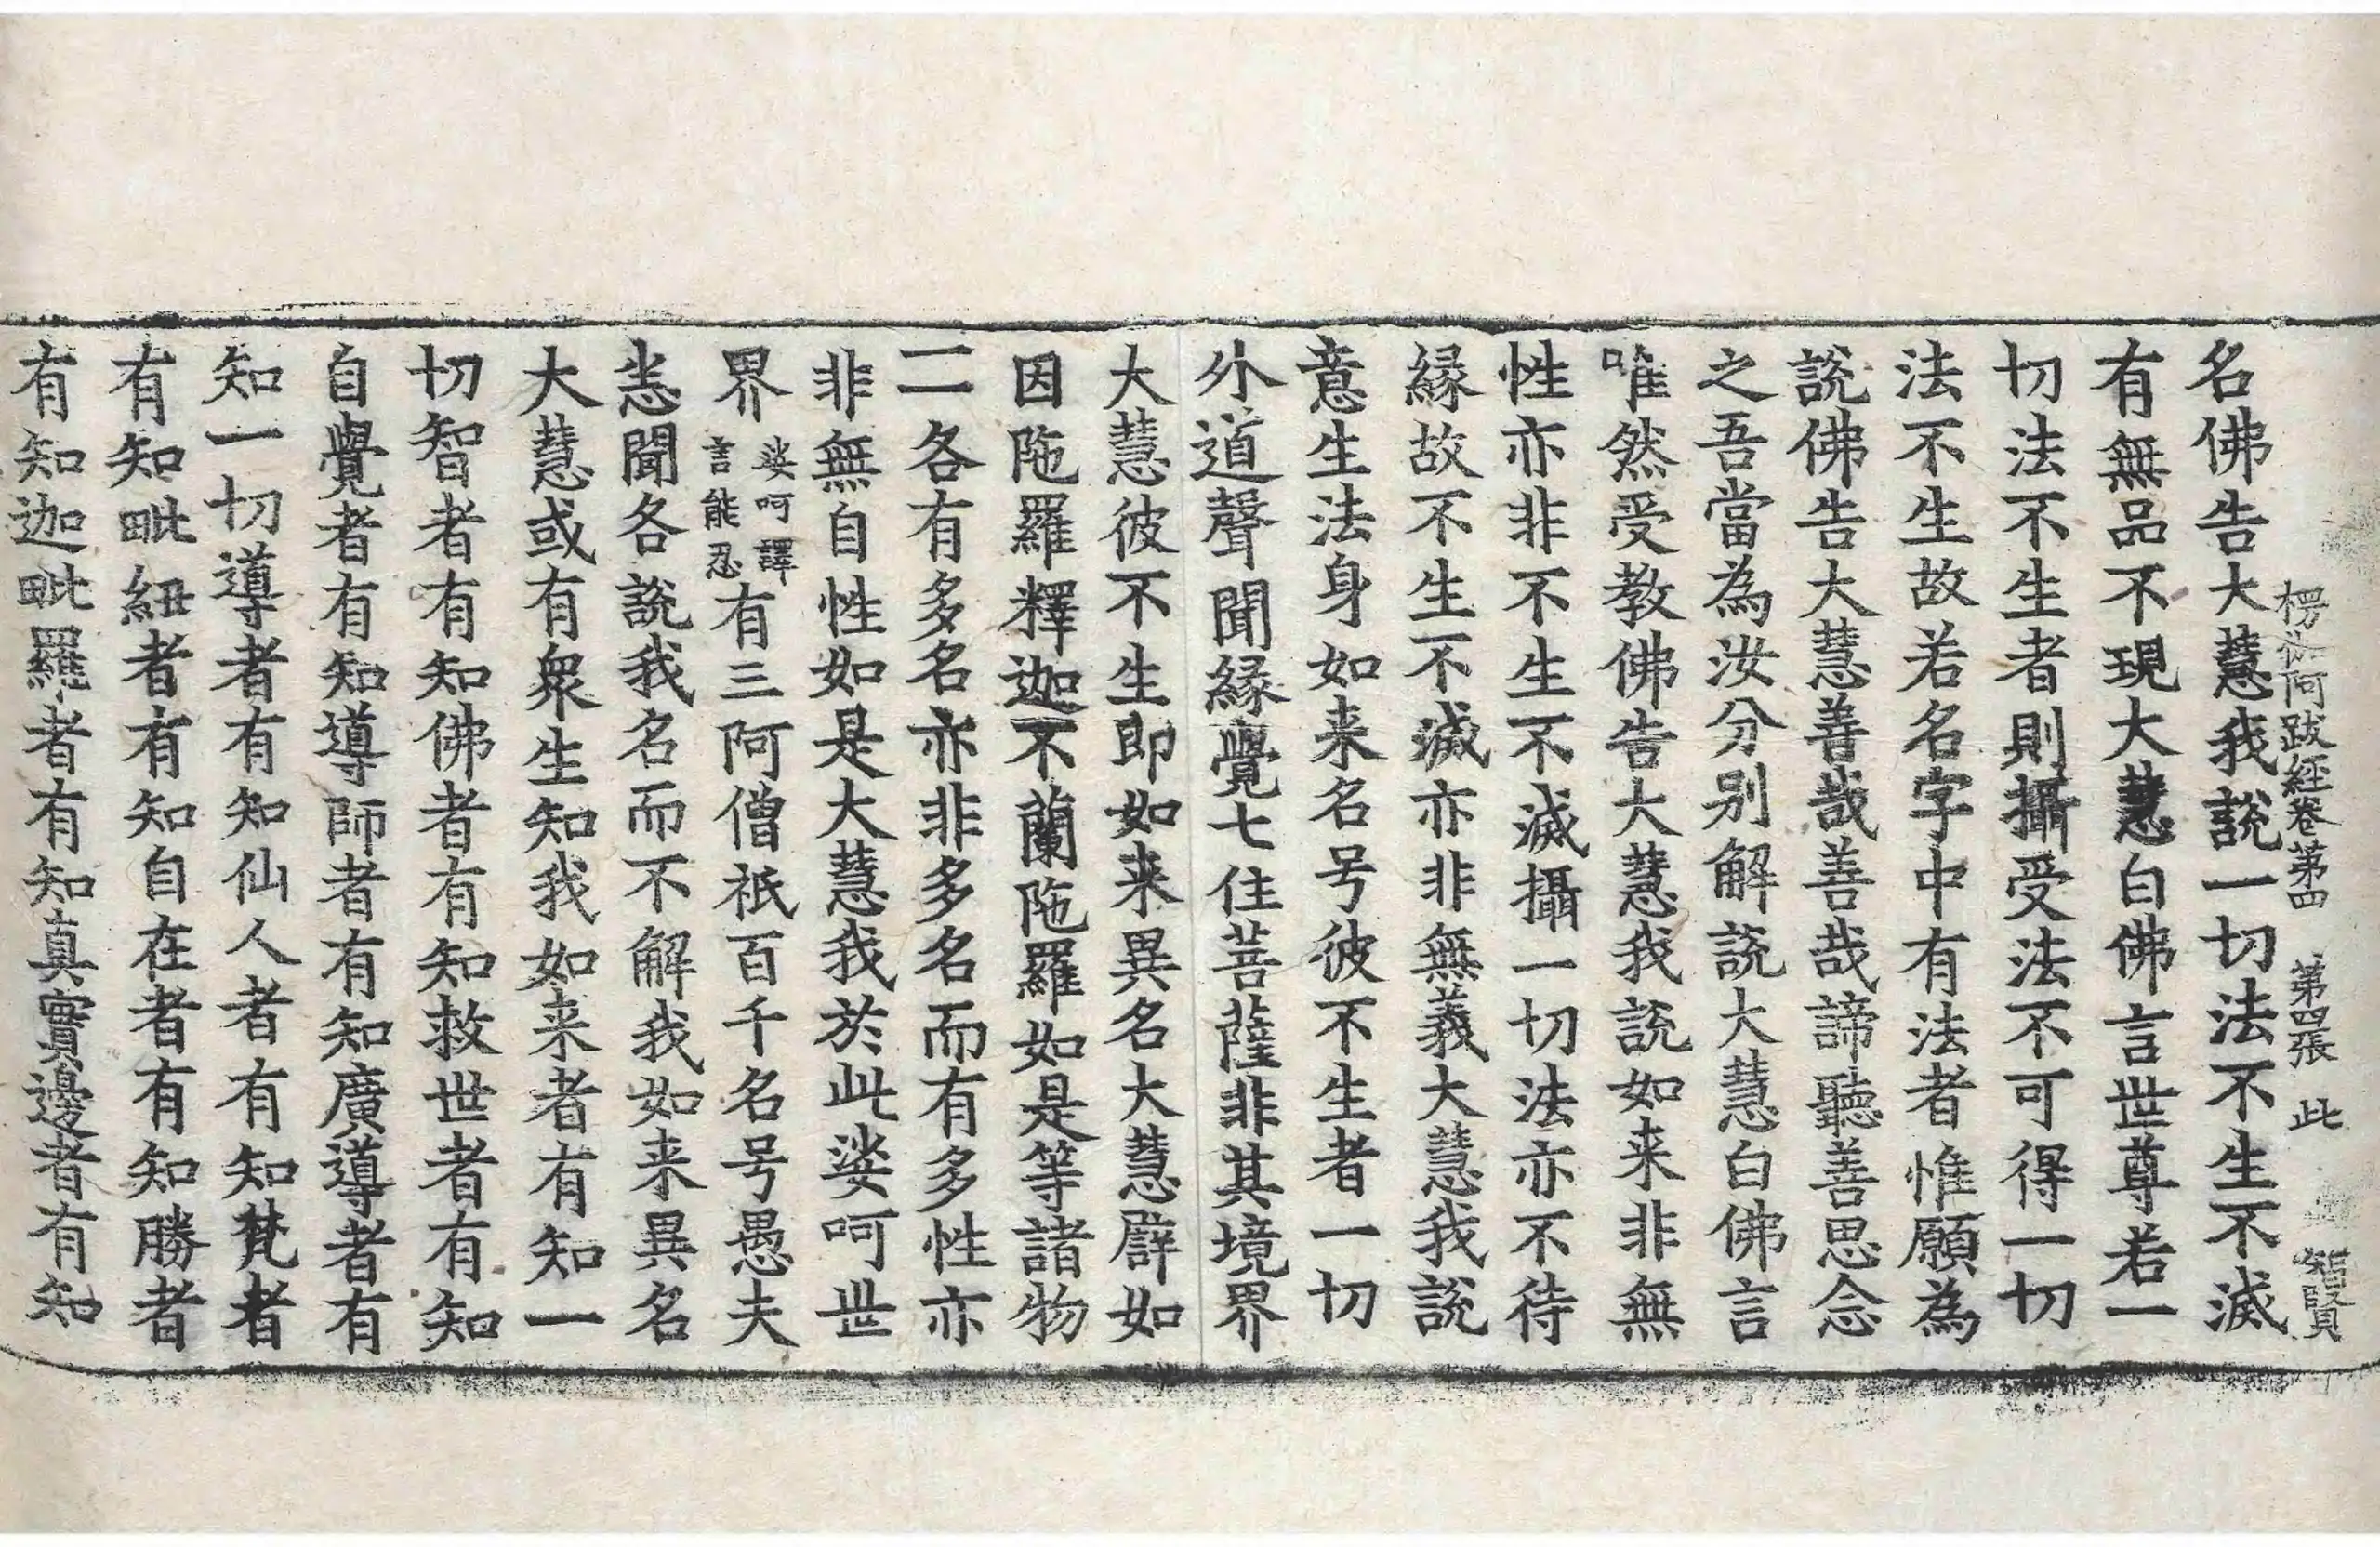 楞伽阿跋經卷第四 第四張 此 智賢
名佛告大慧我説一切法不生不滅
有無品不現大慧白佛言世尊若一
切法不生者則攝受法不可得一切
法不生故若名字中有法者惟願為
説佛告大慧善哉善哉諦聽善思念
之吾當為汝分别解説大慧白佛言
唯然受教佛告大慧我説如来非無
性亦非不生不滅攝一切法亦不待
緣故不生不滅亦非無義大慧我説
意生法身如来名号彼不生者一切
外道聲聞緣覺七住菩薩非其境界
大慧彼不生即如来異名大慧譬如
因陁羅釋迦不蘭陁羅如是等諸物
一一各有多名亦非多名而有多性亦
非無自性如是大慧我於此娑呵世
界娑呵譯言能忍有三阿僧祇百千名号愚夫
悉聞各説我名而不解我如来異名
大慧或有衆生知我如来者有知一
切智者有知佛者有知救世者有知
自覺者有知導師者有知廣導者有
知一切導者有知仙人者有知梵者
有知毗紐者有知自在者有知勝者
有知迦毗羅者有知真實邊者有知